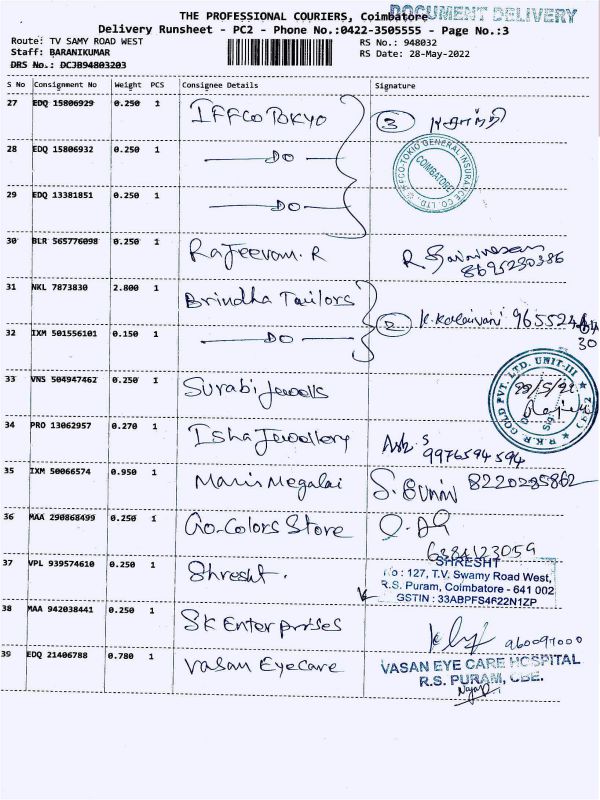 THE PROFESSIONAL COURIERS, Coimbatore
DOCUMENT DELIVERY
Delivery Runsheet - PC2 - Phone No.:0422-3505555 - Page No.:3
Route: TV SAMY ROAD WEST
RS No.: 948032
Staff: BARANIKUMAR
RS Date: 28-May-2022
DRS No.: DCJB94803203
S No Consignment No Weight PCS Consignee Details Signature
27 EDQ 15806929 0.250 1 IFFCO TOKYO 3
28 EDQ 15806932 0.250 1 — DO —
IFFCO-TOKIO GENERAL INSURANCE CO. LTD.,
COIMBATORE
29 EDQ 13381851 0.250 1 — DO —
30 BLR 565776098 0.250 1 Rajeevam. R R Srinivasan
8695230386
31 NKL 7873830 2.800 1 Brindha Tailors
2 K. Kalaivani
32 IXM 501556101 0.150 1 — DO —
33 VNS 504947462 0.250 1 Surabi Jewells
R.K.R GOLD PVT. LTD. UNIT-III
34 PRO 13062957 0.270 1 Isha Jewellery
9976594594
35 IXM 50066574 0.950 1 Manimegalai 8220285862
36 MAA 290868499 0.250 1 Go-Colors Store
6384123059
37 VPL 939574610 0.250 1 Shresht.
SHRESHT
No : 127, T.V. Swamy Road West,
R.S. Puram, Coimbatore - 641 002
GSTIN : 33ABPFS4622N1ZP
38 MAA 942038441 0.250 1 SK Enterprises
39 EDQ 21406788 0.780 1 Vasan Eyecare
VASAN EYE CARE HOSPITAL
R.S. PURAM, CBE.